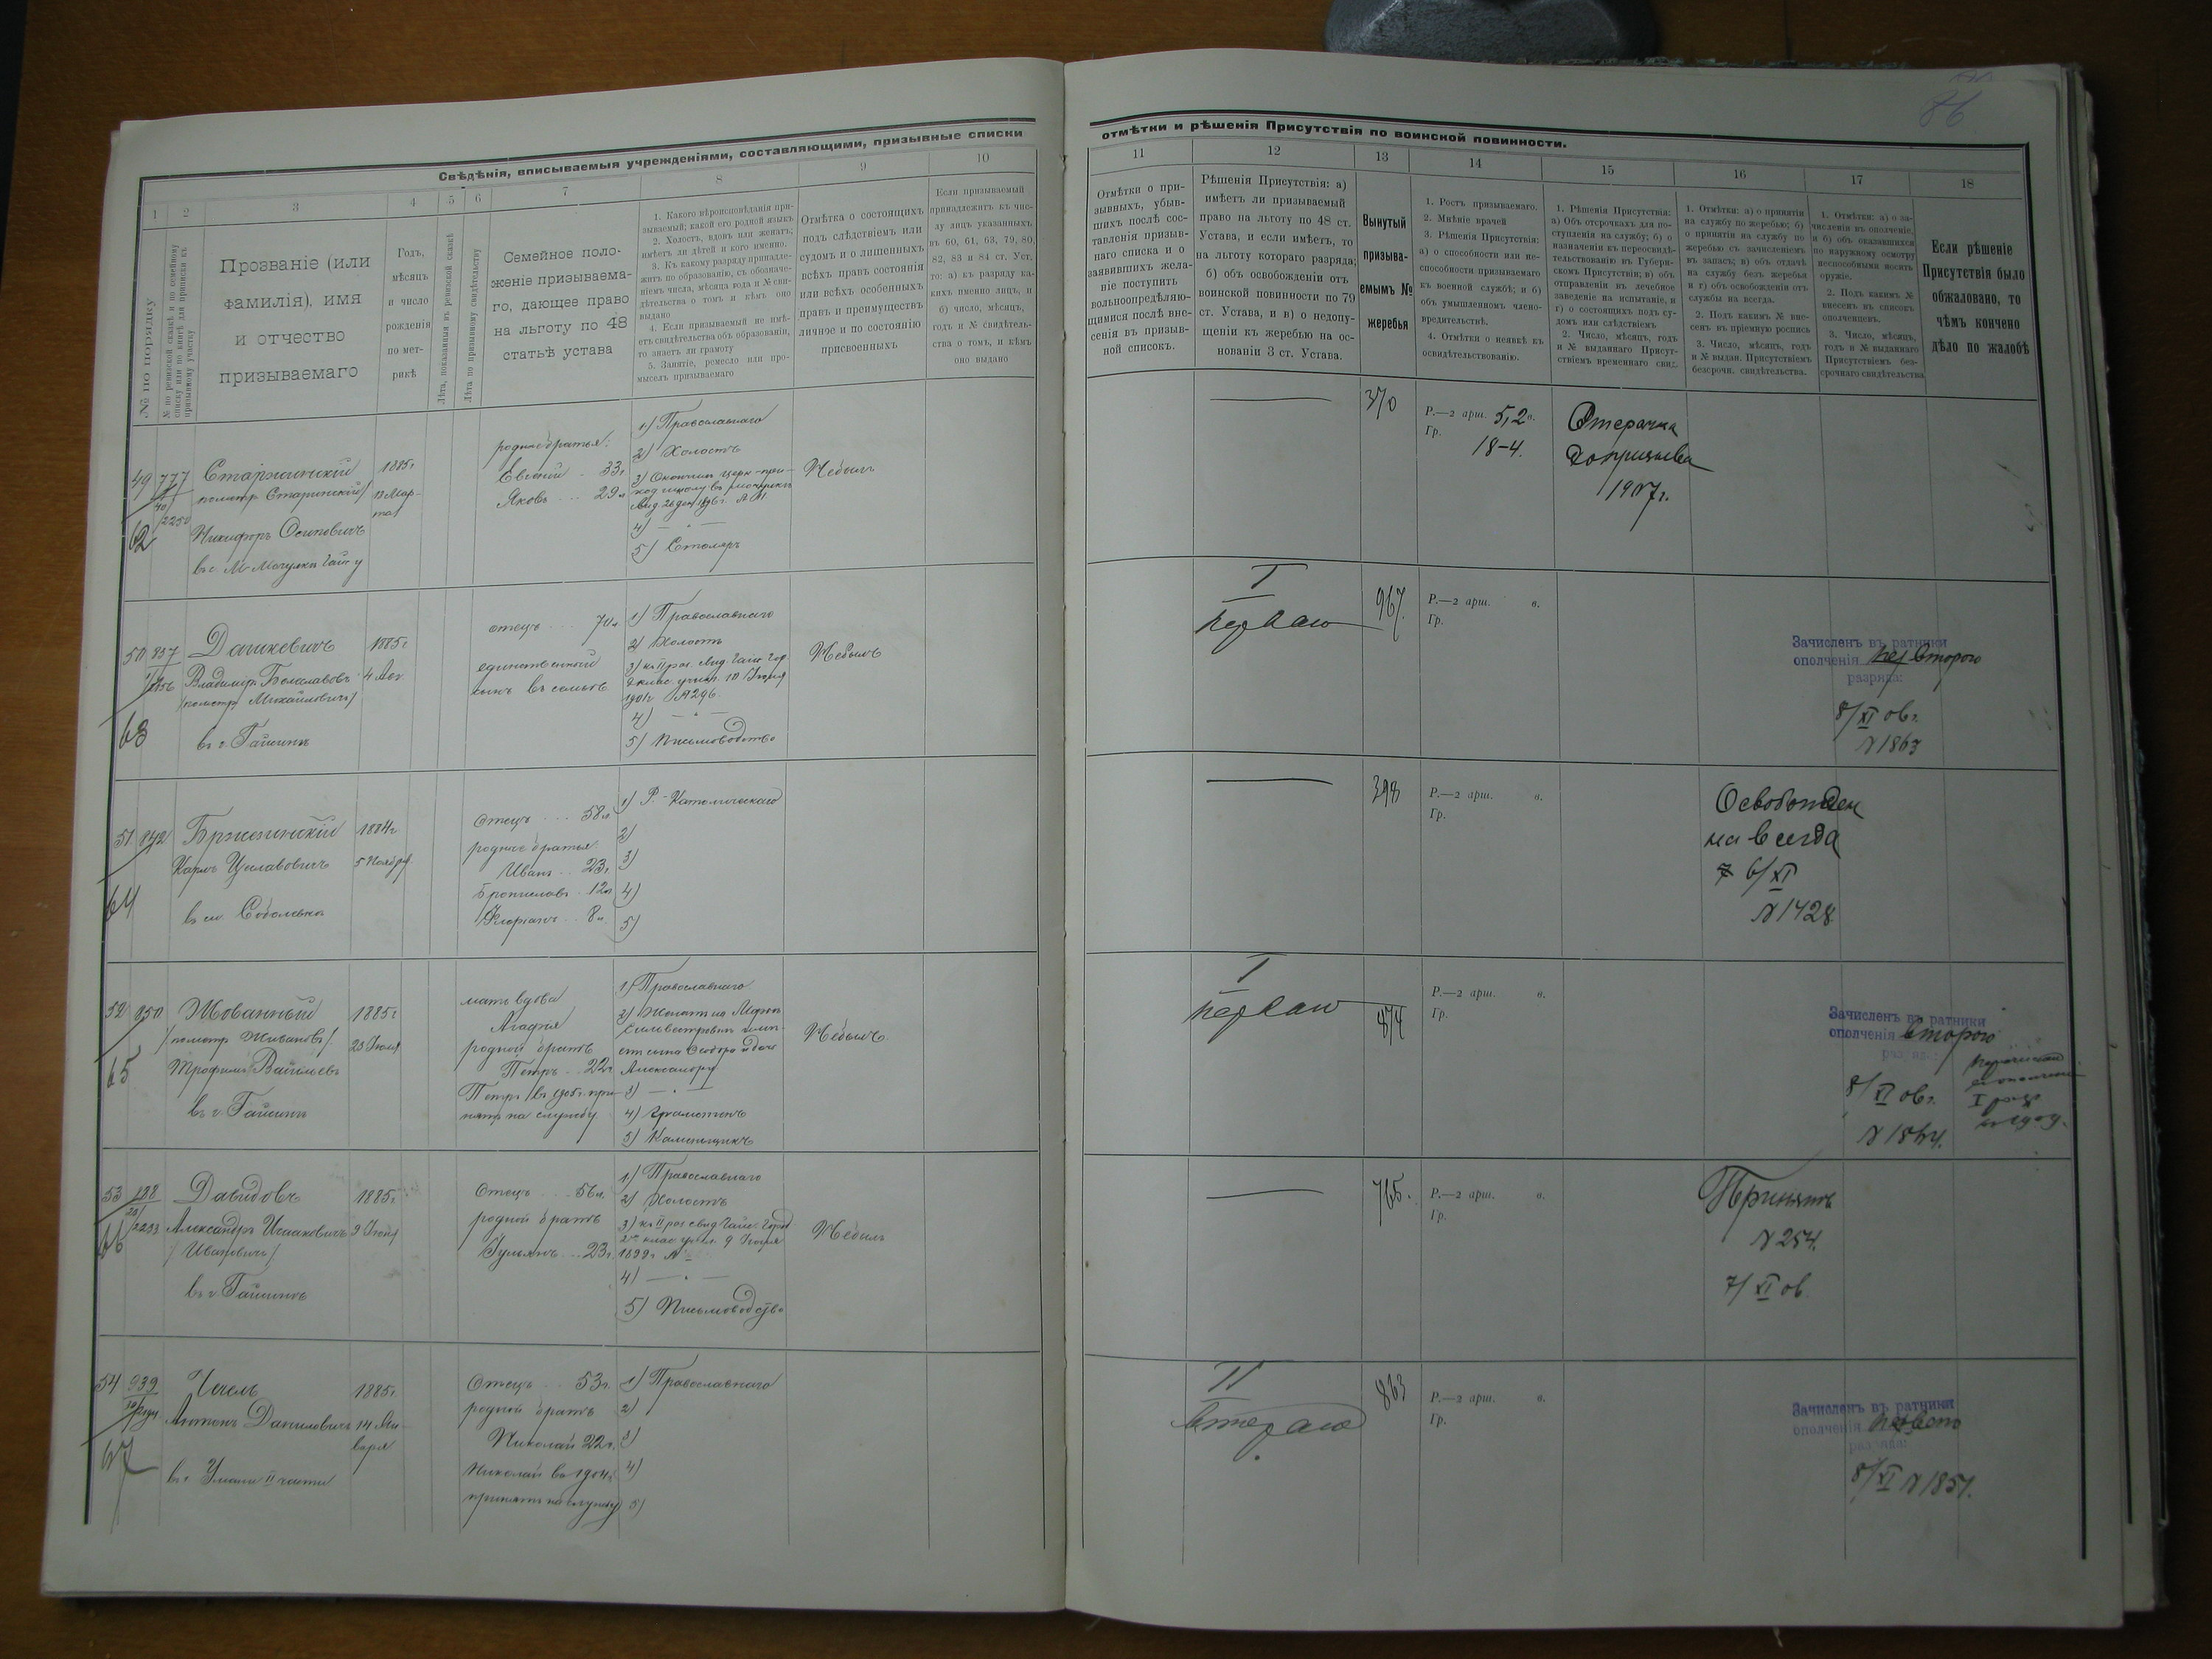 86
Свѣдѣнія, вписываемыя учрежденіями, составляющими, призывные списки
отмѣтки и рѣшенія Присутствія по воинской повинности.
1 2 3 4 5 6 7 8 9 10
11 12 13 14 15 16 17 18
№ по порядку
№ по ревизской сказкѣ и по семейному
списку или по книгѣ для приписки къ
призывному участку
Прозваніе (или
фамилія), имя
и отчество
призываемаго
Годъ,
мѣсяцъ
и число
рожденія
по мет-
рикѣ
Лѣта, показанныя въ ревизской сказкѣ
Лѣта по призывному свидѣтельству
Семейное поло-
женіе призываема-
го, дающее право
на льготу по 48
статьѣ устава
1. Какого вѣроисповѣданія при-
зываемый; какой его родной языкъ
2. Холостъ, вдовъ или женатъ;
имѣетъ ли дѣтей и кого именно.
3. Къ какому разряду принадле-
житъ по образованію, съ обозначе-
ніемъ числа, мѣсяца года и № сви-
дѣтельства о томъ и кѣмъ оно
выдано
4. Если призываемый не имѣ-
етъ свидѣтельства объ образованіи,
то знаетъ ли грамоту
5. Занятіе, ремесло или про-
мыселъ призываемаго
Отмѣтка о состоящихъ
подъ слѣдствіемъ или
судомъ и о лишенныхъ
всѣхъ правъ состоянія
или всѣхъ особенныхъ
правъ и преимуществъ
личное и по состоянію
присвоенныхъ
Если призываемый
принадлежитъ къ чис-
лу лицъ указанныхъ
въ 60, 61, 63, 79, 80,
82, 83 и 84 ст. Уст.
то: а) къ разряду ка-
кихъ именно лицъ, и
б) число, мѣсяцъ,
годъ и № свидѣтель-
ства о томъ, и кѣмъ
оно выдано
Отмѣтки о при-
зывныхъ, убыв-
шихъ послѣ сос-
тавленія призыв-
наго списка и о
заявившихъ жела-
ніе поступить
вольноопредѣляю-
щимися послѣ вне-
сенія въ призыв-
ной списокъ.
Рѣшенія Присутствія: а)
имѣетъ ли призываемый
право на льготу по 48 ст.
Устава, и если имѣетъ, то
на льготу котораго разряда;
б) объ освобожденіи отъ
воинской повинности по 79
ст. Устава, и в) о недопу-
щеніи къ жеребью на ос-
нованіи 3 ст. Устава.
Вынутый
призыва-
емымъ №
жеребья
1. Ростъ призываемаго.
2. Мнѣніе врачей
3. Рѣшенія Присутствія:
а) о способности или не-
способности призываемаго
къ военной службѣ; и б)
объ умышленномъ члено-
вредительствѣ.
4. Отмѣтки о неявкѣ къ
освидѣтельствованію.
1. Рѣшенія Присутствія:
а) Объ отсрочкахъ для по-
ступленія на службу; б) о
назначеніи къ переосвидѣ-
тельствованію въ Губерн-
скомъ Присутствіи; в) объ
отправленіи въ лечебное
заведеніе на испытаніе, и
г) о состоящихъ подъ су-
домъ или слѣдствіемъ
2. Число, мѣсяцъ, годъ
и № выданнаго Присут-
ствіемъ временнаго свид.
1. Отмѣтки: а) о принятіи
на службу по жеребью; б)
о принятіи на службу по
жеребью съ зачисленіемъ
въ запасъ; в) объ отдачѣ
на службу безъ жеребья
и г) объ освобожденіи отъ
службы на всегда.
2. Подъ какимъ № вне-
сенъ въ пріемную роспись
3. Число, мѣсяцъ, годъ
и № выдан. Присутствіемъ
безсрочн. свидѣтельства.
1. Отмѣтки: а) о за-
численіи въ ополченіе,
и б) объ оказавшихся
по наружному осмотру
неспособными носить
оружіе.
2. Подъ какимъ №
внесенъ въ списокъ
ополченцевъ.
3. Число, мѣсяцъ,
годъ и № выданнаго
Присутствіемъ без-
срочнаго свидѣтельства
Если рѣшеніе
Присутствія было
обжаловано, то
чѣмъ кончено
дѣло по жалобѣ
49 777
62
Старжинскій
Никифоръ Осиповичъ
1885г
13 Мар-
та
родные братья:
Евгеній 33г
Яковъ 29л
1) Православнаго
2) Холостъ
4) — " —
5) Столяръ
Небылъ
370
Р.—2 арш. 5,2 в.
Гр. 18-4.
Отсрочка
до призыва
1907г.
50 837
63
Дашкевичъ
Владимиръ
Михайловичъ
въ г. Гайсинѣ
1885г
отецъ 70л
единственный
сынъ въ семьѣ
1) Православнаго
2) Холостъ
1901г №296.
4) — " —
5) Письмоводство
Небылъ
I
перваго
967.
Р.—2 арш. в.
Гр.
Зачисленъ въ ратники
ополченія второго
разряда:
8/XI 06г.
№1863
51 842
64
Бржезинскій
Карлъ
1884г
5 Ноября
Отецъ 58л
родные братья:
Иванъ 23г.
Брониславъ 12л
Флоріанъ 8л.
1) Р.-Католическаго
2)
3)
4)
5)
398
Р.—2 арш. в.
Гр.
Освобожден
на всегда
6/XI
№1428
52 850
65
Жованный
Трофимъ Васильевъ
въ г. Гайсинѣ
1885г
23 Іюля
мать вдова
Агафія
родной братъ
Петръ 22г
на службу
1) Православнаго
3) — " —
4) Грамотенъ
5) Каменщикъ
Небылъ
I
первая
874
Р.—2 арш. в.
Гр.
Зачисленъ въ ратники
ополченія второго
разряда:
8/XI 06г.
№1864.
53 188
66
Давидовъ
Александръ Исааковичъ
/Ивановичъ/
въ г. Гайсинѣ
1885г
9 Іюня
Отецъ 56л.
родной братъ
Гульянъ 23г.
1) Православнаго
2) Холостъ
4) — " —
5) Письмоводство
Небылъ
765.
Р.—2 арш. в.
Гр.
Принятъ
№254.
7/XI 06
54 939
67
Чечель
Антонъ Даниловичъ
въ г. Умани II части
1885г
14 Ян-
варя
Отецъ 53г.
родной братъ
Николай 22г.
Николай въ 1904г.
принятъ на службу
1) Православнаго
2)
3)
4)
5)
II
второго
863
Р.—2 арш. в.
Гр.
Зачисленъ въ ратники
ополченія перваго
разряда:
8/XI №1851.